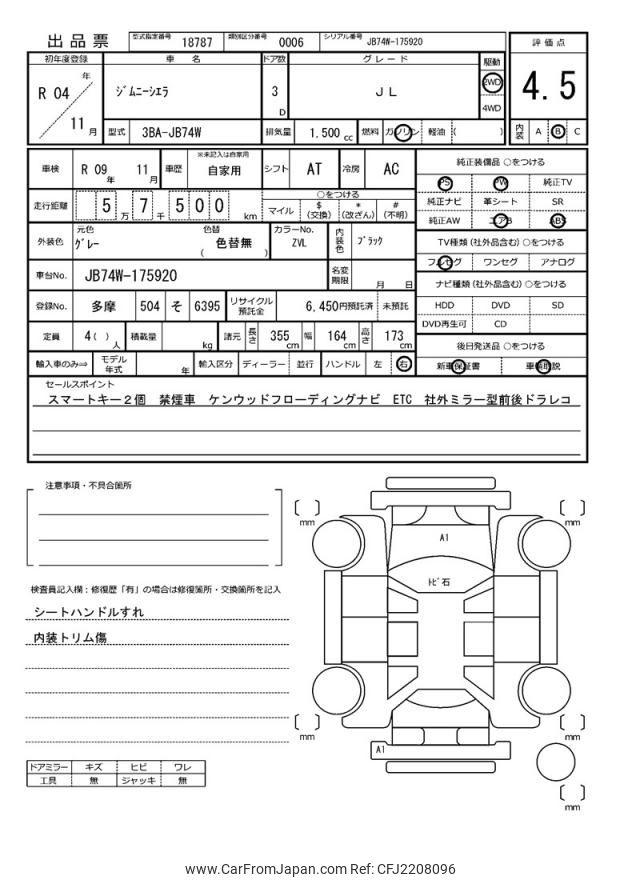 出品票 型式指定番号 18787 類別区分番号 0006 シリアル番号 JB74W-175920
評価点
4.5
内装 A B C
初年度登録 車名 ドア数 グレード 駆動
R 04 年 11 月
ジムニーシエラ 3 D JL 2WD 4WD
型式 3BA-JB74W 排気量 1.500 cc 燃料 ガソリン 軽油 ( )
車検 R 09 年 11 月 車歴 ※未記入は自家用 自家用 シフト AT 冷房 AC
走行距離 5 万 7 千 5 0 0 km
○をつける
マイル $ (交換) * (改ざん) # (不明)
外装色 元色 グレー 色替 色替無 ( ) カラーNo. ZVL 内装色 ブラック
車台No. JB74W-175920 名変期限 月 日
登録No. 多摩 504 そ 6395 リサイクル預託金 6,450円預託済 未預託
定員 4( ) 人 積載量 kg 諸元 長さ 355 cm 幅 164 cm 高さ 173 cm
輸入車のみ⇒ モデル年式 年 輸入区分 ディーラー 並行 ハンドル 左 右
純正装備品 ○をつける
PS PW 純正TV
純正ナビ 革シート SR
純正AW エアB ABS
TV種類(社外品含む) ○をつける
フルセグ ワンセグ アナログ
ナビ種類(社外品含む) ○をつける
HDD DVD SD
DVD再生可 CD
後日発送品 ○をつける
新車保証書 車輌取説
セールスポイント
スマートキー2個 禁煙車 ケンウッドフローディングナビ ETC 社外ミラー型前後ドラレコ
注意事項・不具合箇所
検査員記入欄：修復歴「有」の場合は修復箇所・交換箇所を記入
シートハンドルすれ
内装トリム傷
ドアミラー キズ ヒビ ワレ
工具 無 ジャッキ 無
[ ] mm
[ ] mm
A1
トビ石
[ ] mm
[ ] mm
A1
[ ] mm
www.CarFromJapan.com Ref: CFJ2208096